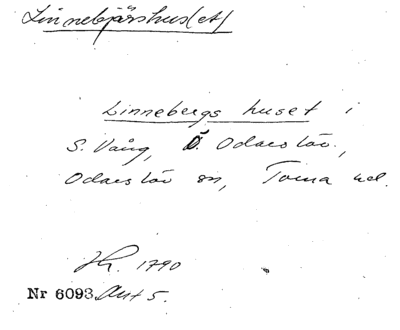 Linnebjärshus(et)
Linnebergs huset i
S. Vång, Ö. Odarslöv.,
Odarslöv sn, Torna hd.
1790
Nr 6093 Akt 5.